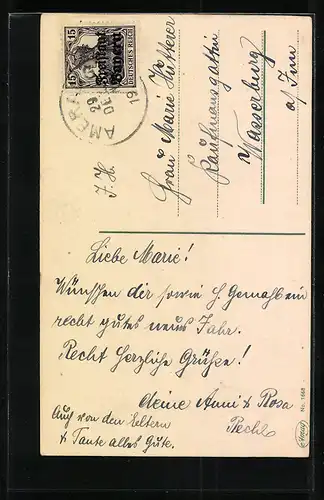 15 15
DEUTSCHES REICH
Freistaat
Bayern
29
DEZ
19
J. H.
Frau Marie Hütterer
Kaufmannsgattin
Wasserburg
a/ Inn
Liebe Marie!
Wünschen dir sowie H. Gemahl ein
recht gutes neues Jahr.
Recht herzliche Grüße!
deine Anni & Rosa
Pechl
Auch von den Eltern
& Tante alles Gute.
Amag
No. 1668